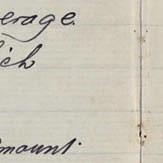 erage.
ich
mount.